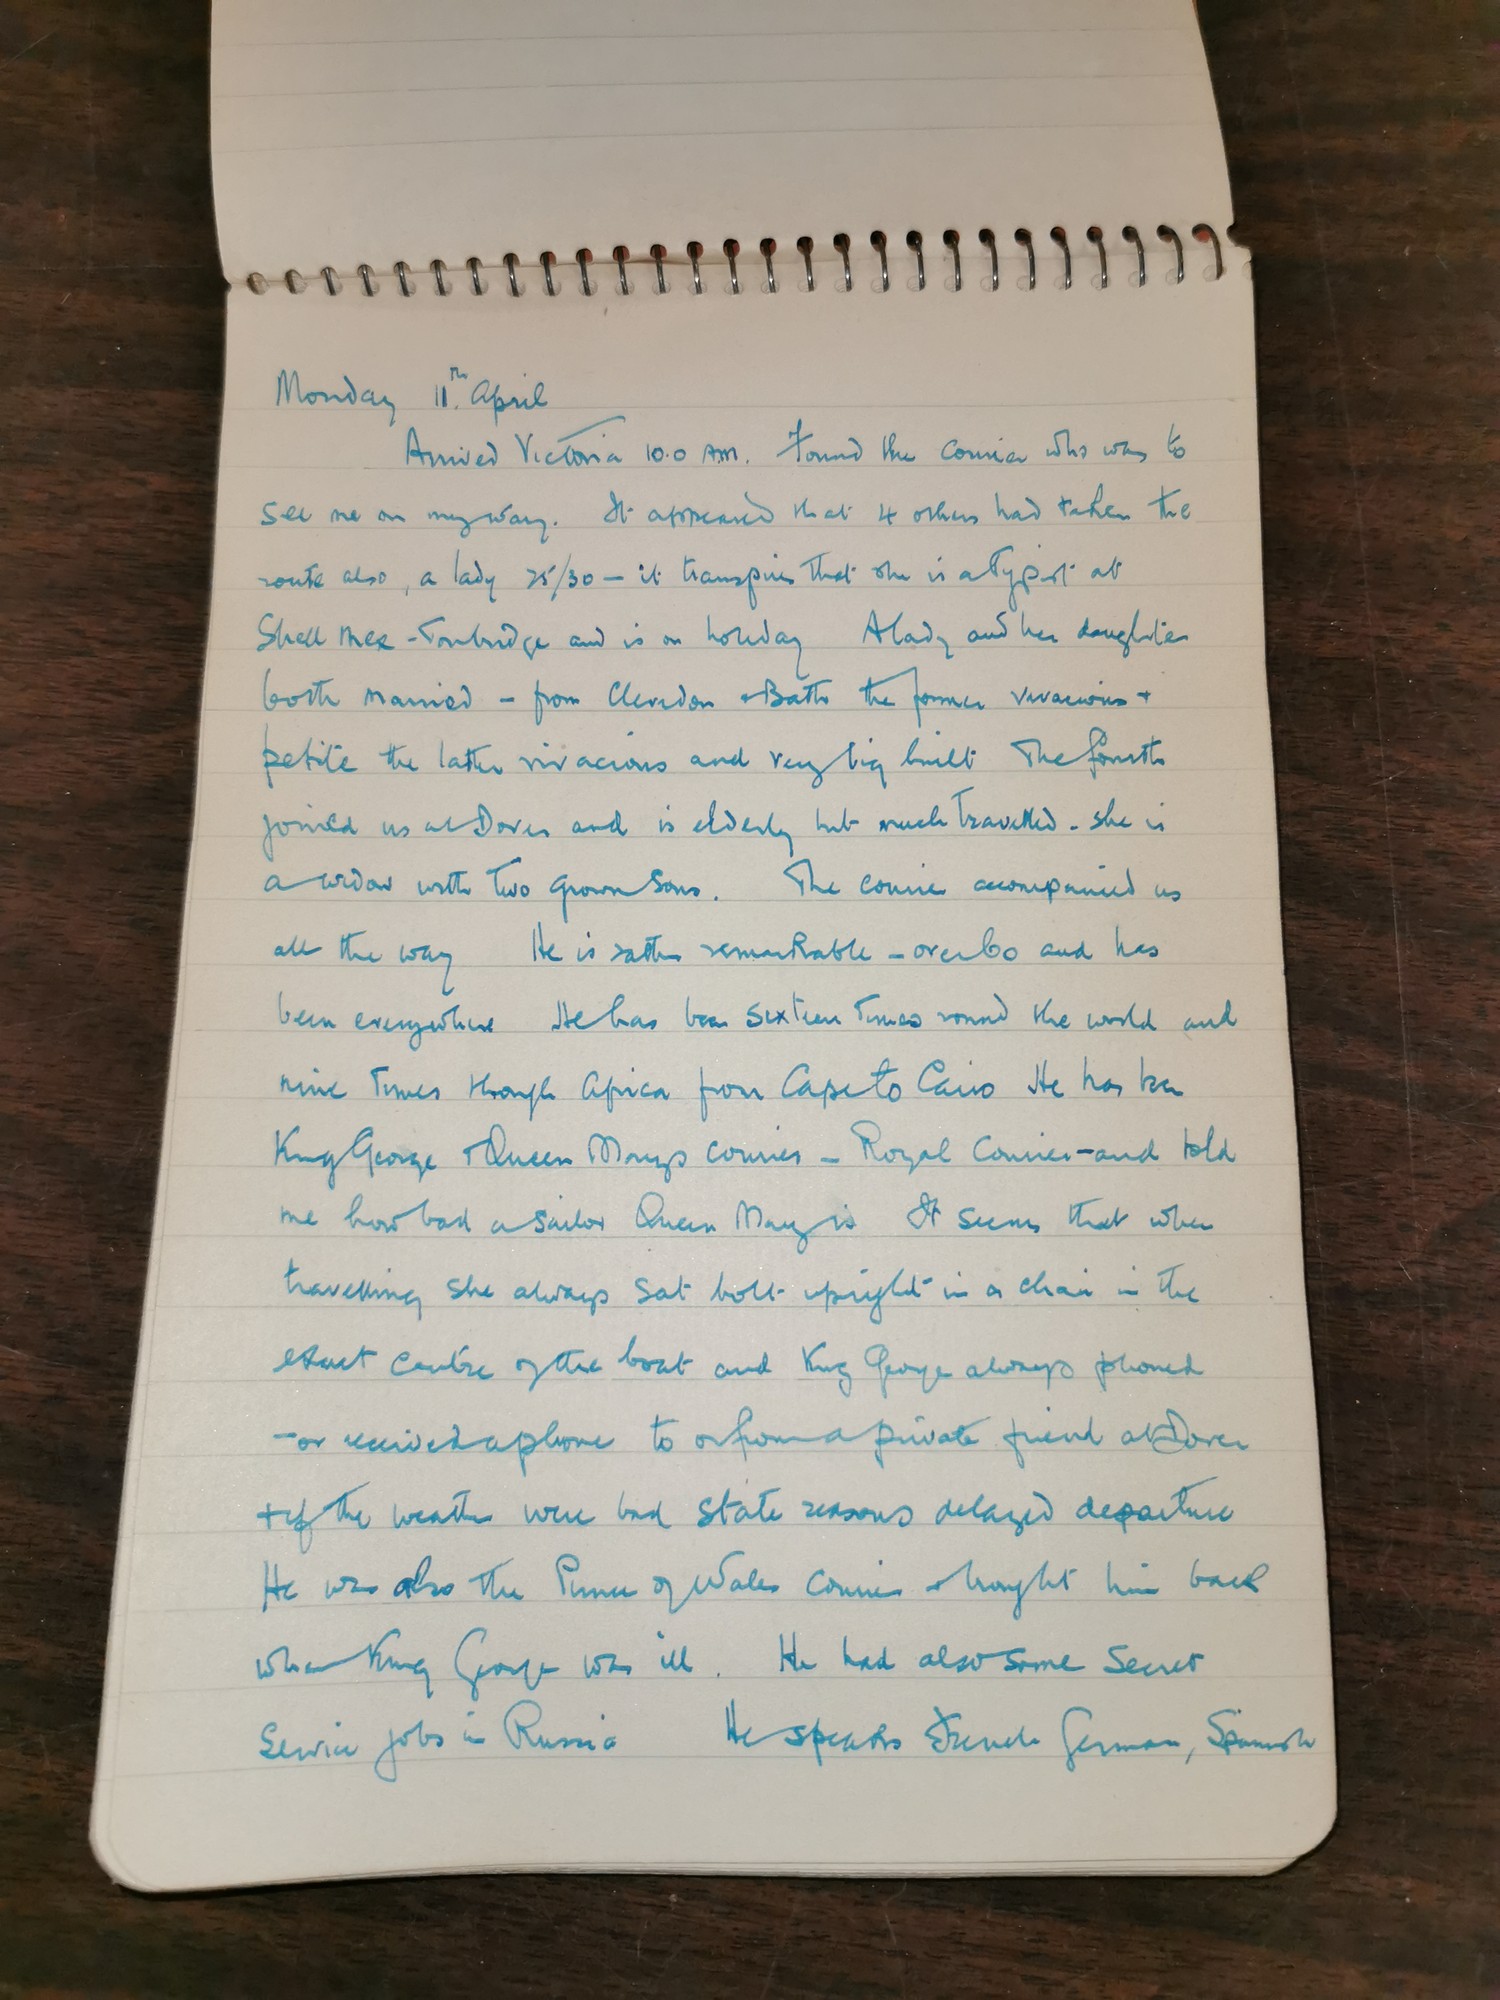 Monday 11th April
Arrived Victoria 10.0 AM. Found the courier who was to
see me on my way. It appeared that 4 others had taken the
route also, a lady 25/30 – it transpires that she is a typist at
Shell Mex – Tonbridge and is on holiday A lady and her daughter
both married – from Clevedon + Bath the former vivacious +
petite the latter vivacious and very big built The fourth
joined us at Dover and is elderly but much travelled – she is
a widow with two grown sons. The courier accompanied us
all the way He is rather remarkable – over 60 and has
been everywhere He has been sixteen times round the world and
nine times through Africa from Cape to Cairo He has been
King George + Queen Marys courier – Royal Courier – and told
me how bad a sailor Queen Mary is It seems that when
travelling she always sat bolt upright in a chair in the
exact centre of the boat and King George always phoned
– or received a phone to or from a private friend at Dover
+ if the weather were bad state reasons delayed departure
He was also the Prince of Wales courier + brought him back
when King George was ill. He had also some Secret
Service jobs in Russia He speaks French German, Spanish